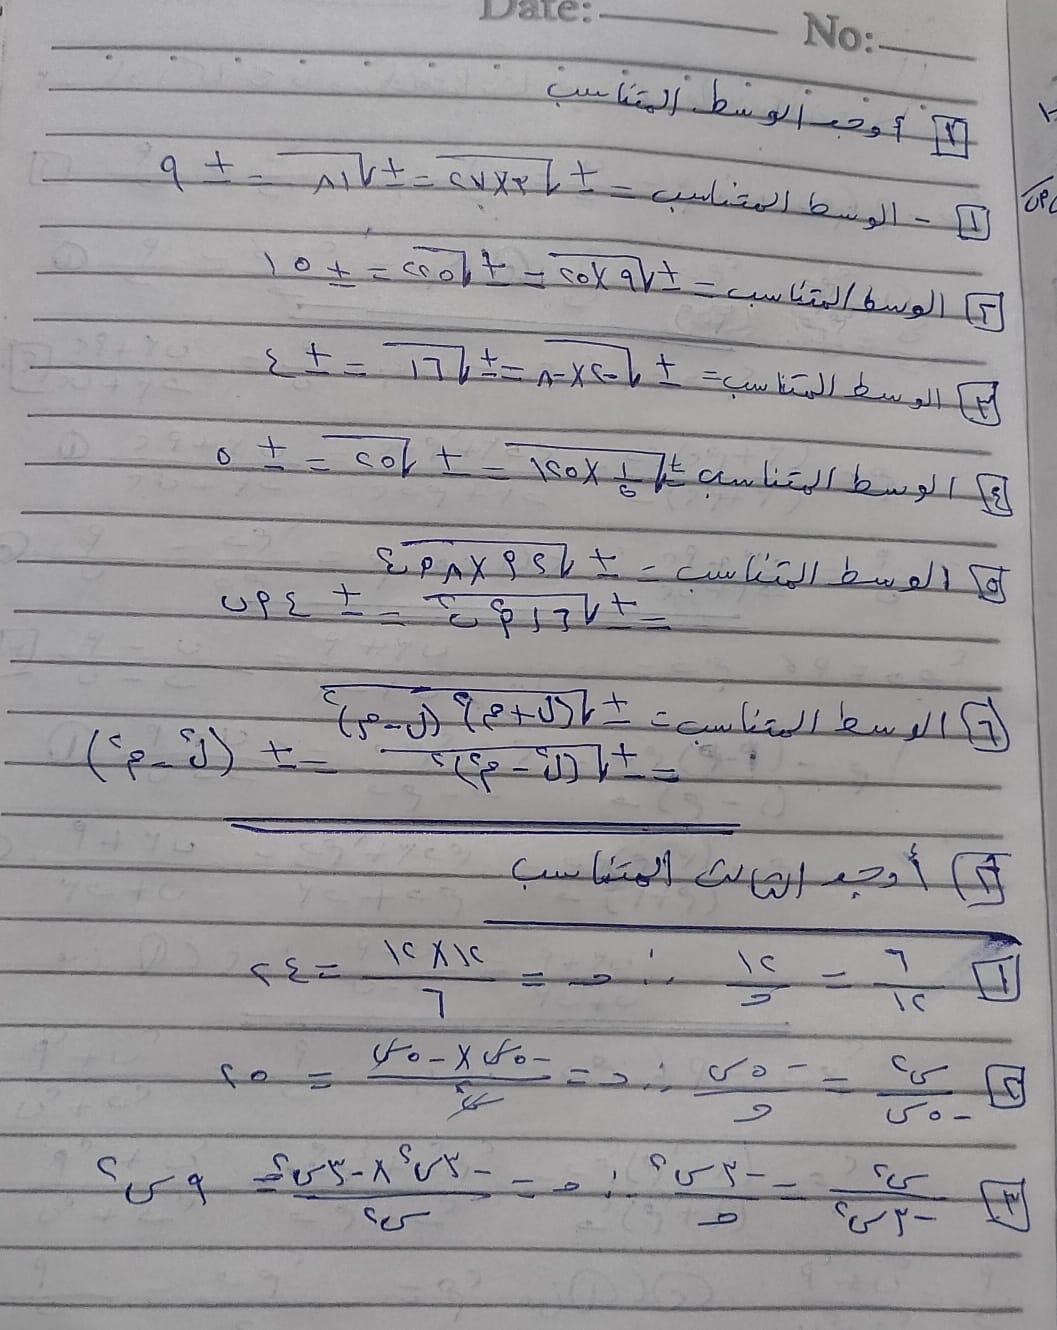 Date: No:
[٢] أوجد الوسط المتناسب
[١] - الوسط المتناسب = ± √٣×٢٧ = ± √٨١ = ± ٩
[٢] الوسط المتناسب = ± √٩×٢٥ = ± √٢٢٥ = ± ١٥
[٣] الوسط المتناسب = ± √-٢×-٨ = ± √١٦ = ± ٤
[٤] الوسط المتناسب = ± √١/٥×١٢٥ = ± √٢٥ = ± ٥
[٥] الوسط المتناسب =
[٦] الوسط المتناسب = ± √(ل+م)² (ل-م)²
= ± √(ل²-م²)² = ± (ل²-م²)
[٣] أوجد الثالث المتناسب
[١] ٦/١٢ = ١٢/ج ∴ ج = ١٢×١٢/٦ = ٢٤
[٢] س²/-٥س = -٥س/ج ∴ ج = -٥س×-٥س/س² = ٢٥
[٣] س²/-٣س² = -٣س²/ج ∴ ج = -٣س²×-٣س²/س² = ٩س²